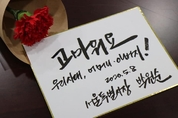 고마워요
우리시대, 어머니·아버지!
2020. 5. 8
서울특별시장 박원순